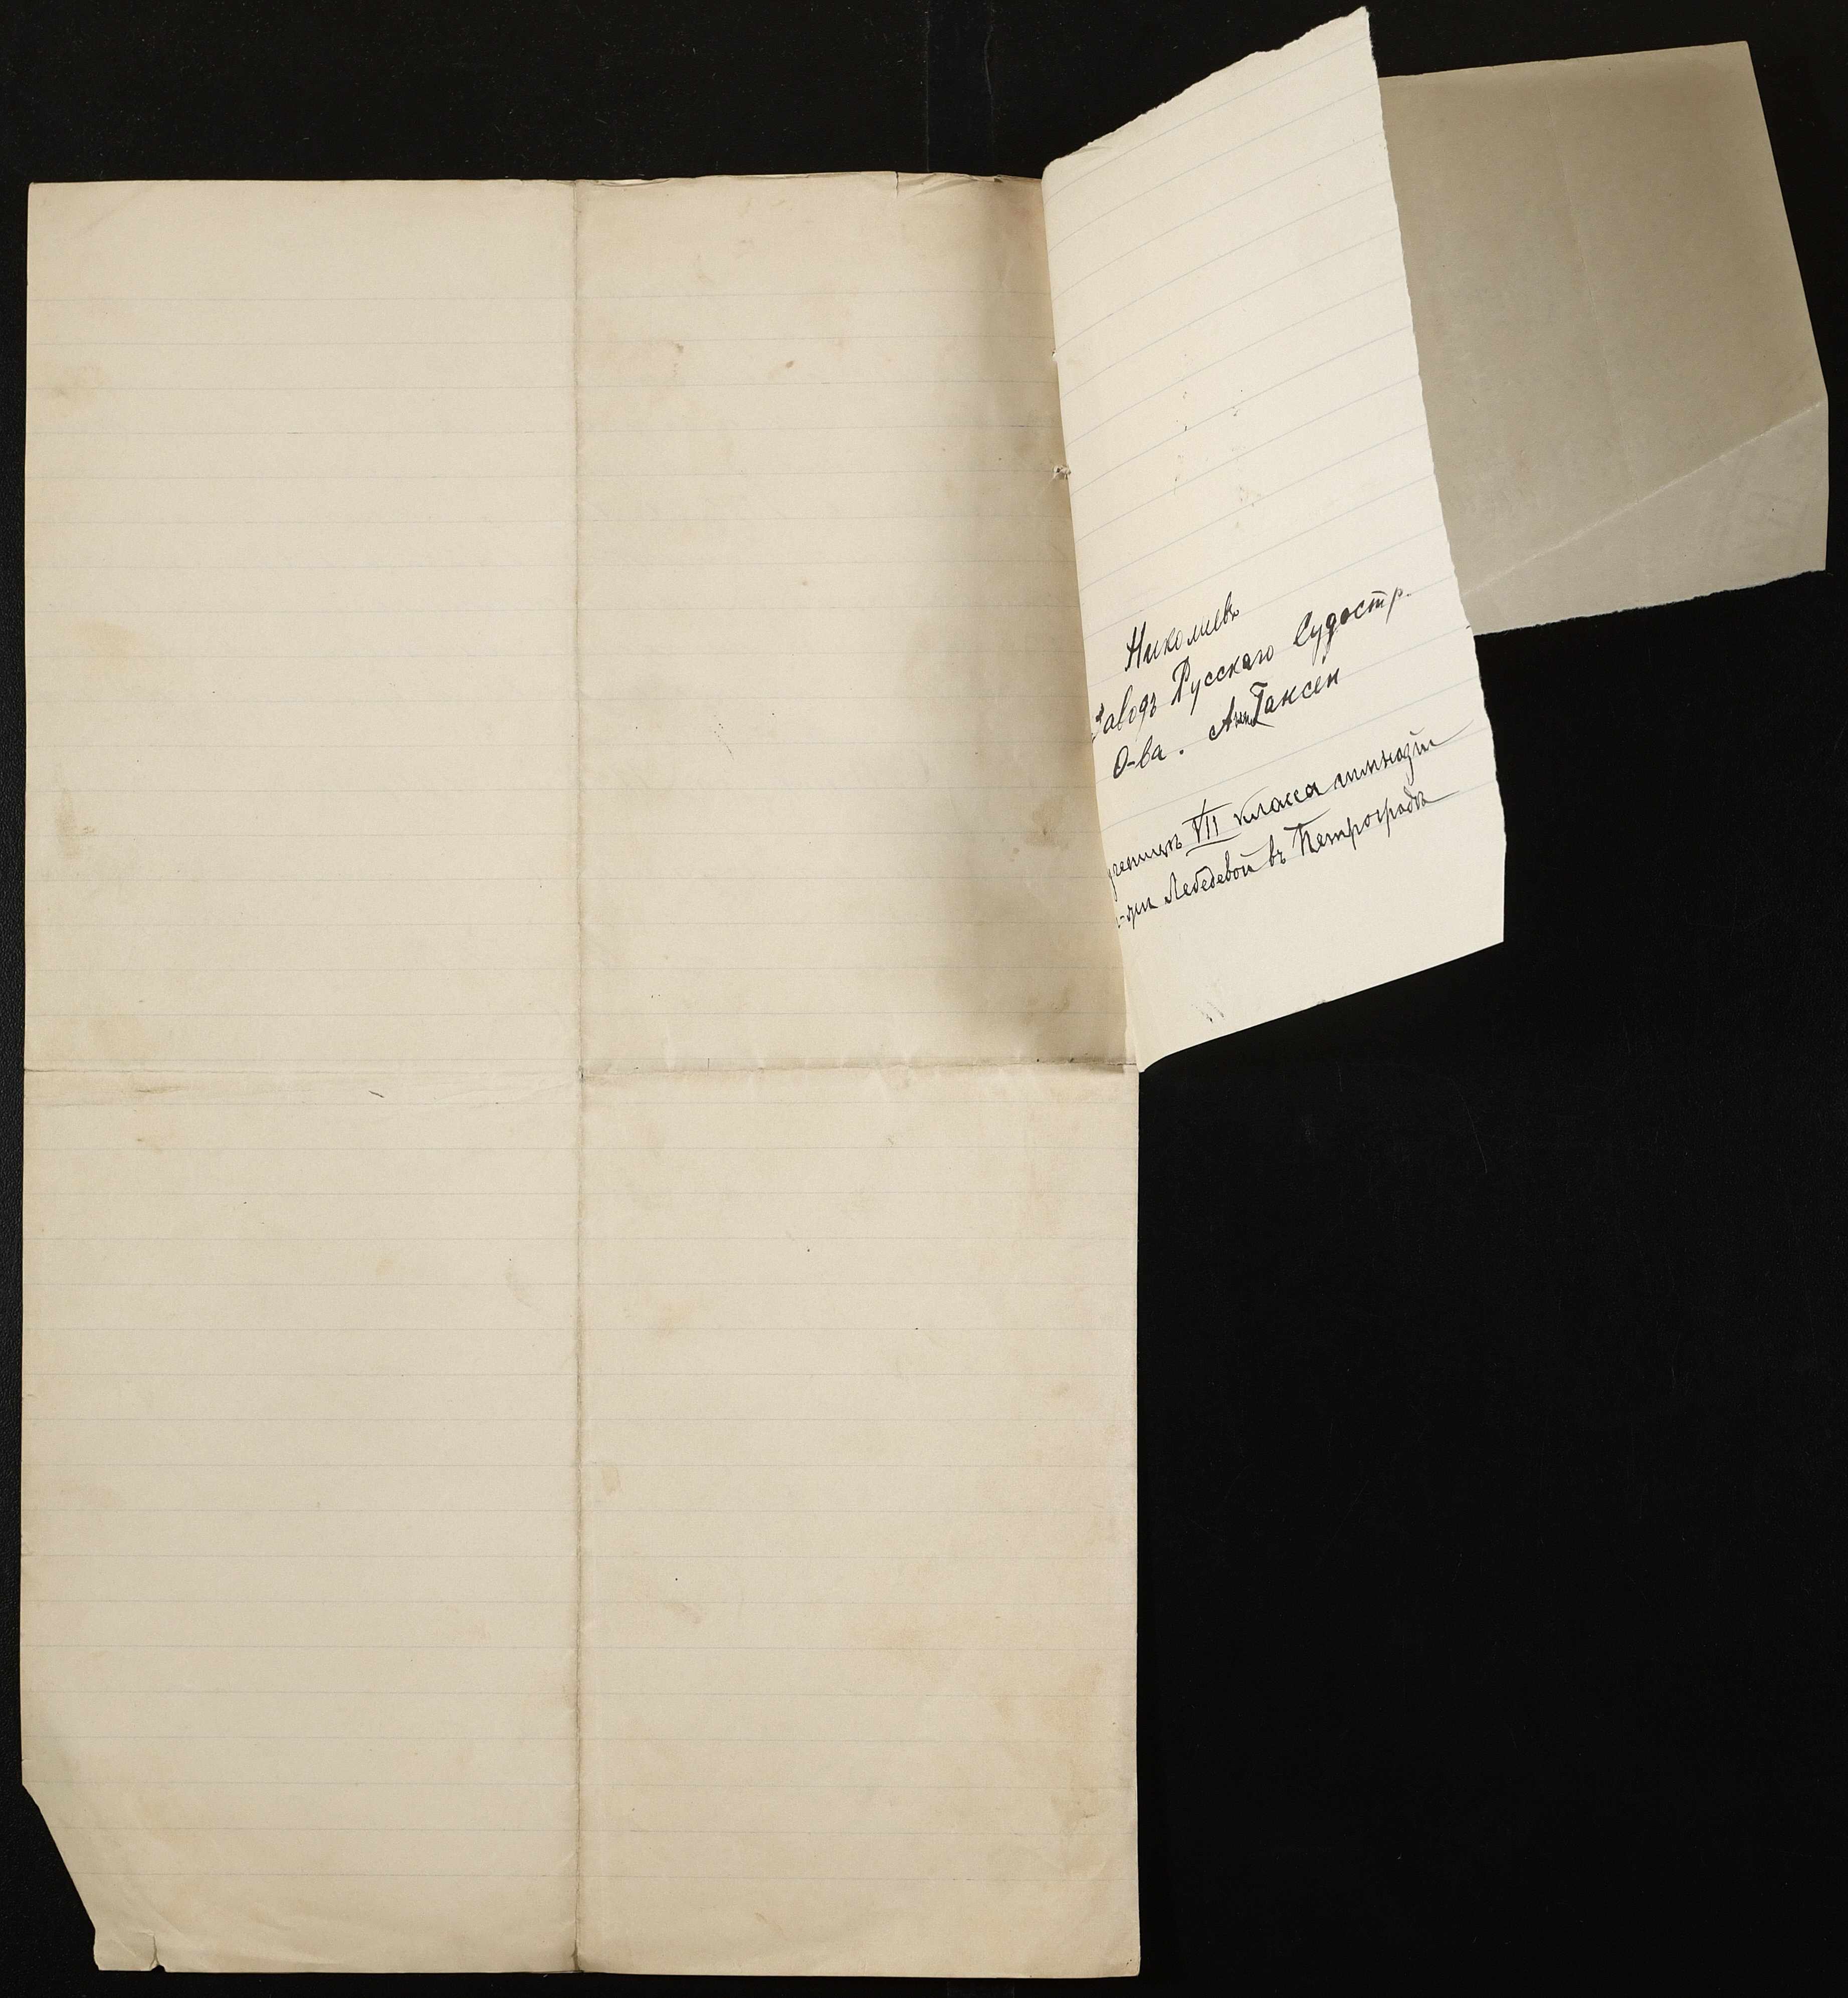 Николаевъ
Заводъ Русскаго Судостр.
О-ва. Гансен
ученицъ VII класса гимназiи
Лебедевой въ Петроградѣ